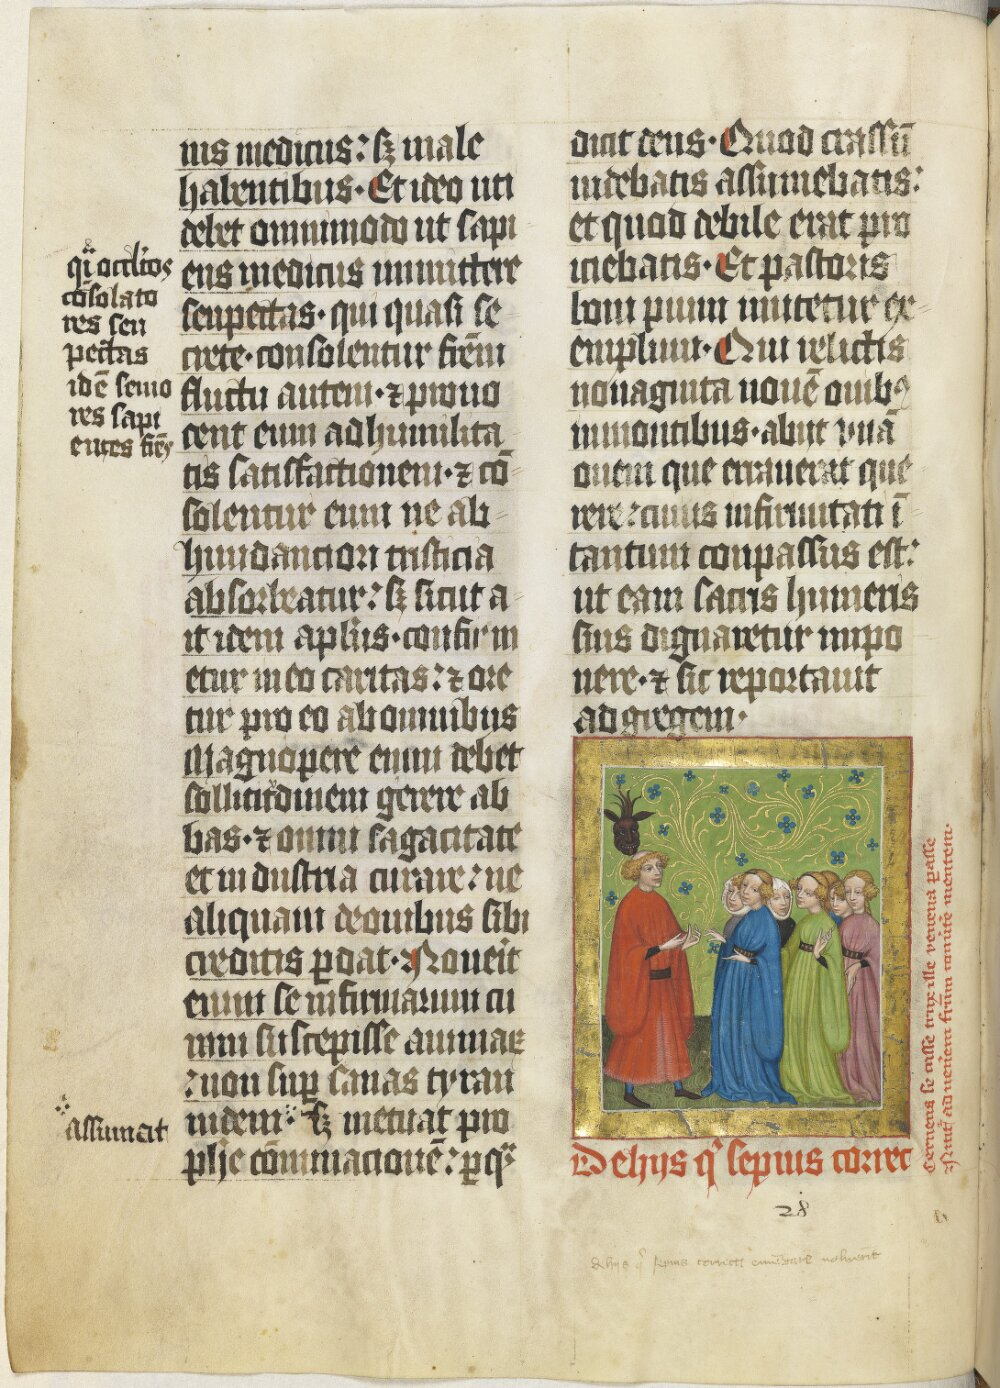 nis medicus: sꝫ male
habentibus· Et ideo uti
debet omnimodo ut sapi
ens medicus inmittere
senpectas· qui quasi se
crete· consolentur fr̄em
fluctu antem· ⁊ prouo
cent eum ad humilita
tis satisfactionem· ⁊ cō
solentur eum ne ab-
hundanciori tristicia
absorbeatur: sꝫ sicut a-
it idem apl̄us· confirm
etur in eo caritas: ⁊ ore
tur pro eo ab omnibus
Magnopere enim debet
sollicitudinem gerere ab
bas· ⁊ omni sagacitate
et industria curare: ne
aliquam deouibus sibi
creditis ꝑdat· Nouerit
enim se infirmarum cu
ram suscepisse animar
: non suꝑ sanas tyran
nidem· sꝫ metuat pro
ph̄e cōminacionē: ꝑ qͣ
qͥ occl̄tos
cōsolato
res sen
pectas
id ē senio
res sapi
entes fr̄es
assumat
dicit deus· Quod crassū
uidebatis assumebatis:
et quod debile erat pro
iciebatis· Et pastoris
boni pium imitetur ex-
emplum· Qui relictis
nonaginta nouē ouibꝫ
inmontibus· abiit vnā
ouem que errauerat que
rere: cuius infirmitati ī
tantum conpassus est:
ut eam sacris humeris
suis dignaretur inpo
nere· ⁊ sic reportauit
ad gregem·
Dehijs qͥ sepius correc
Cernens se cusse trux ille venena ꝑasse
ad ueniem fr̄um mentem·
28
dehijs qͥ sepius correcti emēdare noluerit